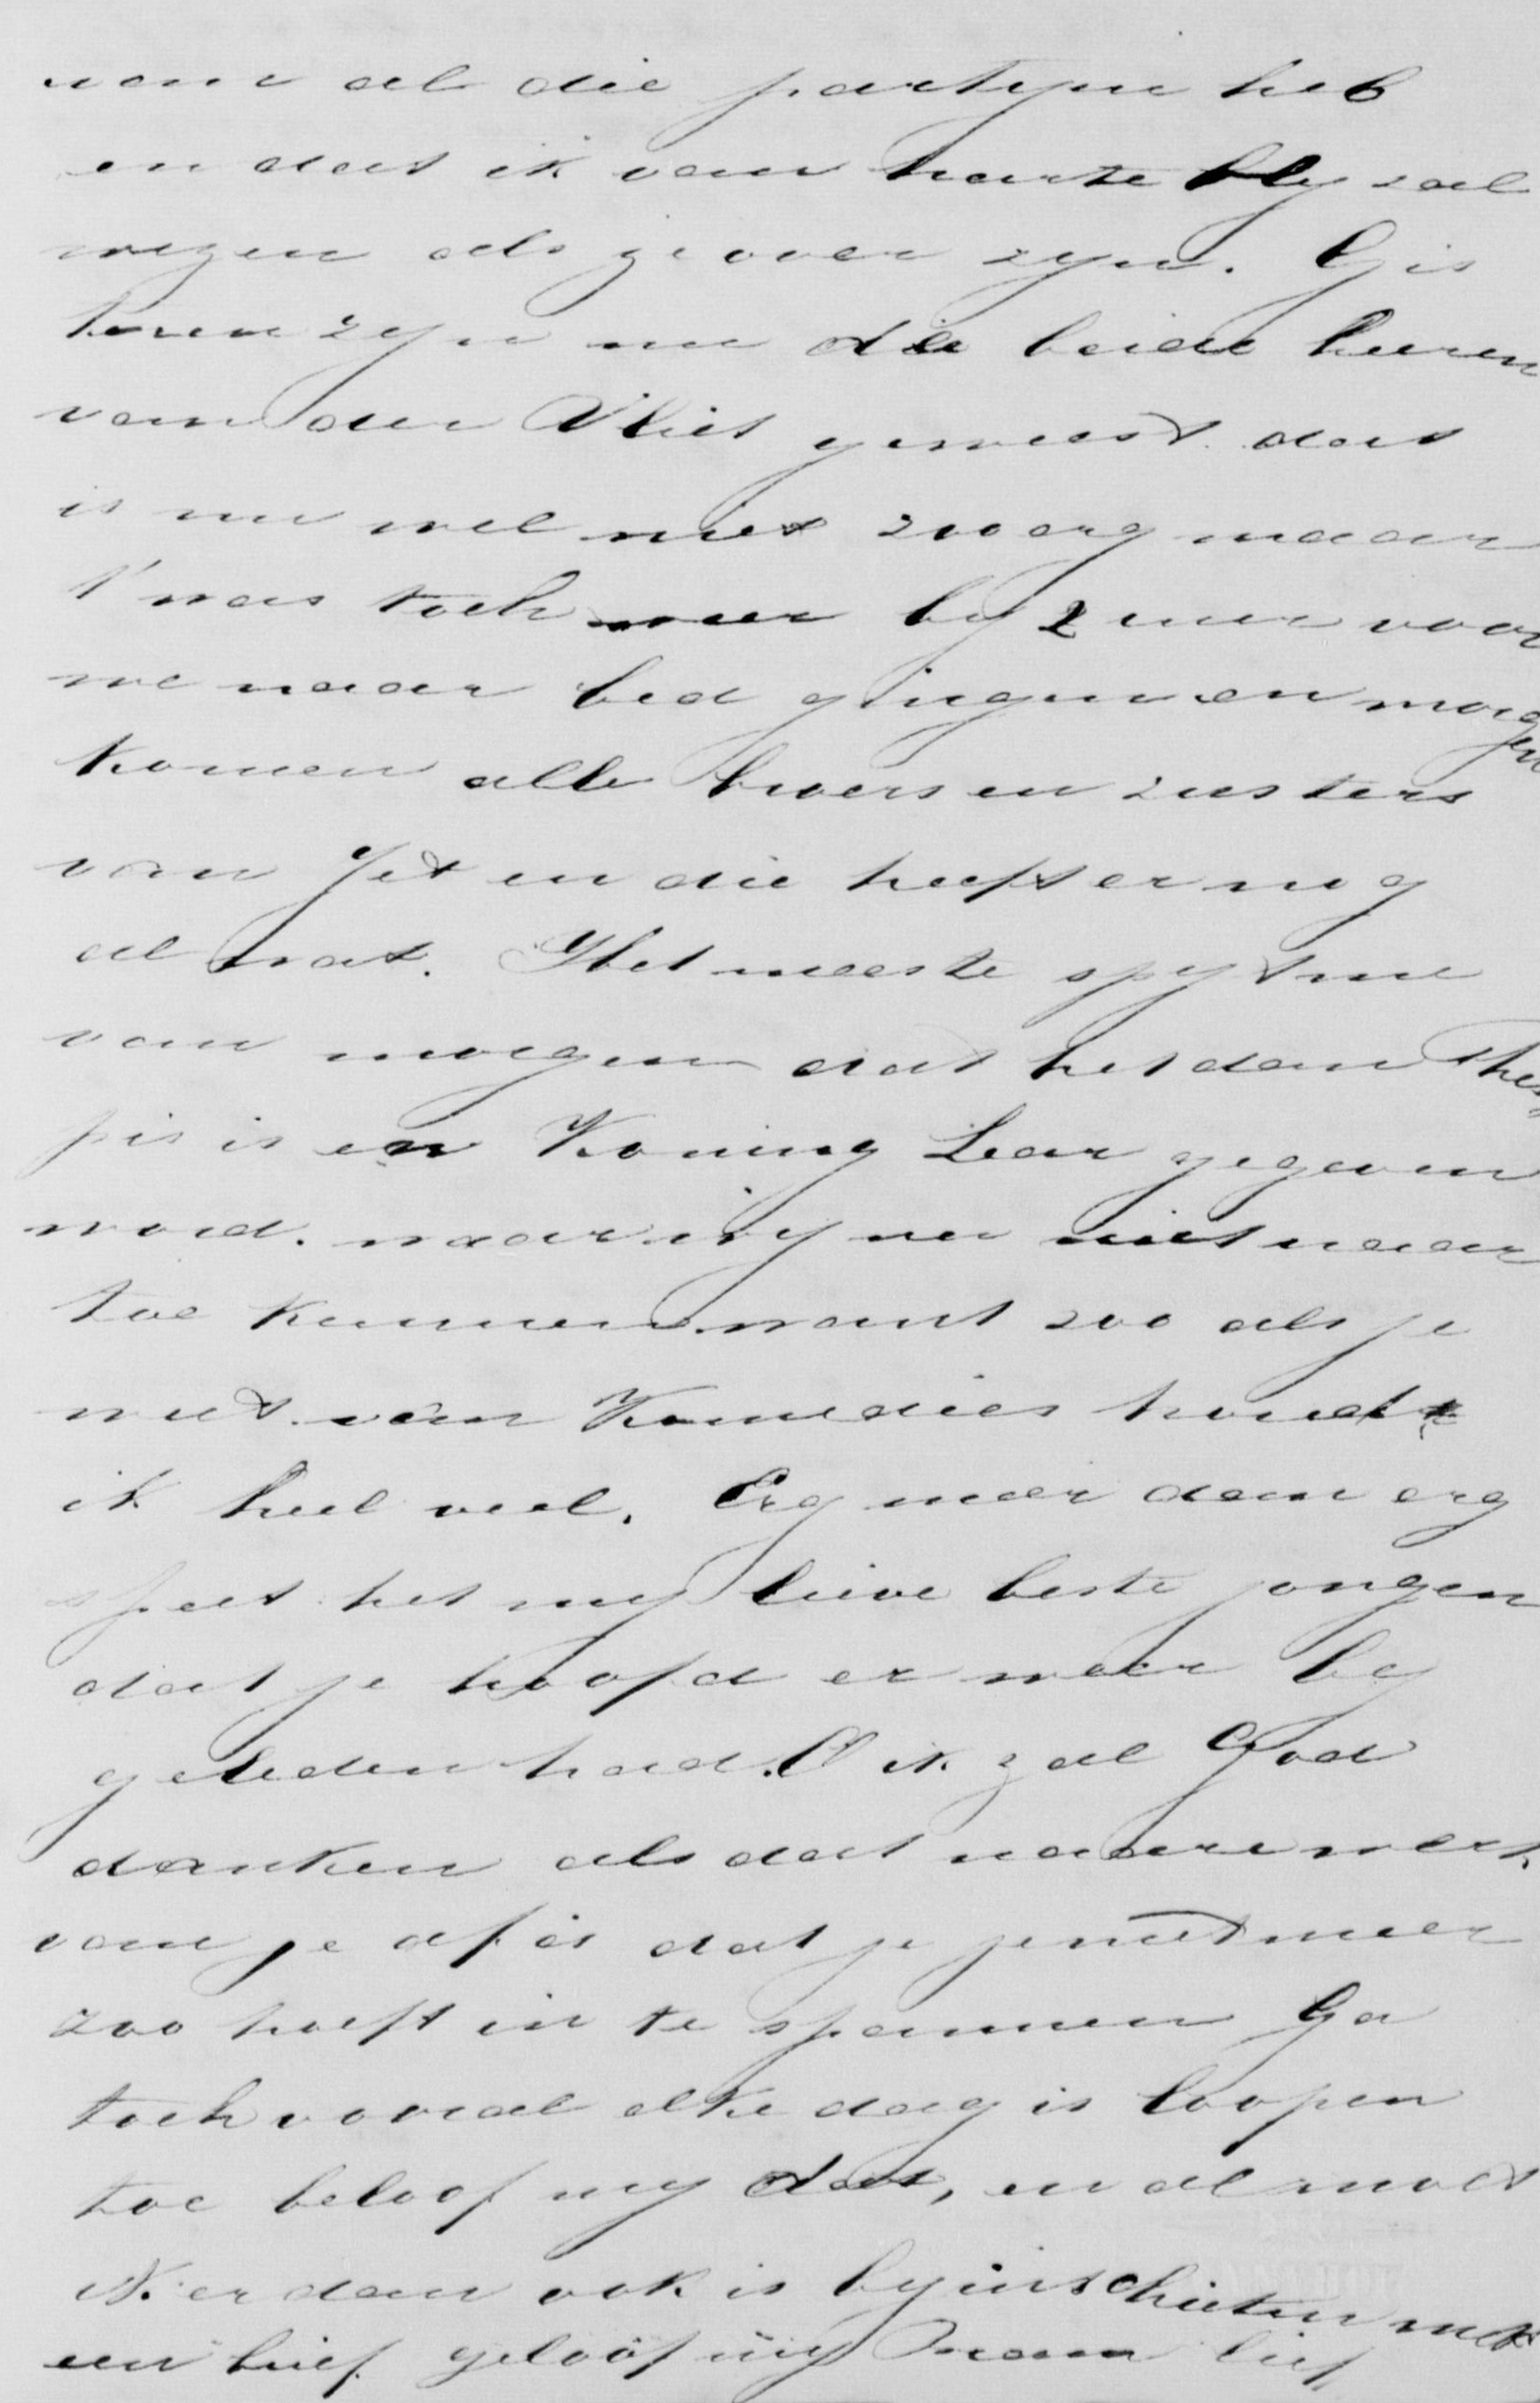 van al die partyen heb
en dat ik van harte bly zal
wezen als ze over zyn. Gis
teren zyn nu die beide heeren
van der Vliet geweest dat
is nu wel niet zoo erg maar
t' was toch weer by 2 uur voor
we naar bed gingen en morgen
komen alle broers en zusters
van Jet en die heeft er nog
al wat. Het meeste spyt me
van morgen dat het dan Thes
pis is en Koning Lear gegeven
word. waar wy nu niet naar
toe kunnen. want zoo als je
weet van Komedies houd
ik heel veel. Erg meer dan erg
speet het my lieve beste jongen
dat je hoofd er weer by
geleden had. O ik zal God
danken als dat nare werk
van je af is dat je je niet meer
zoo hoeft in te spannen Ga
toch vooral elke dag is loopen
toe beloof my dat, en al moet
N. er dan ook is byinschieten met
een brief. geloof my Mama lief